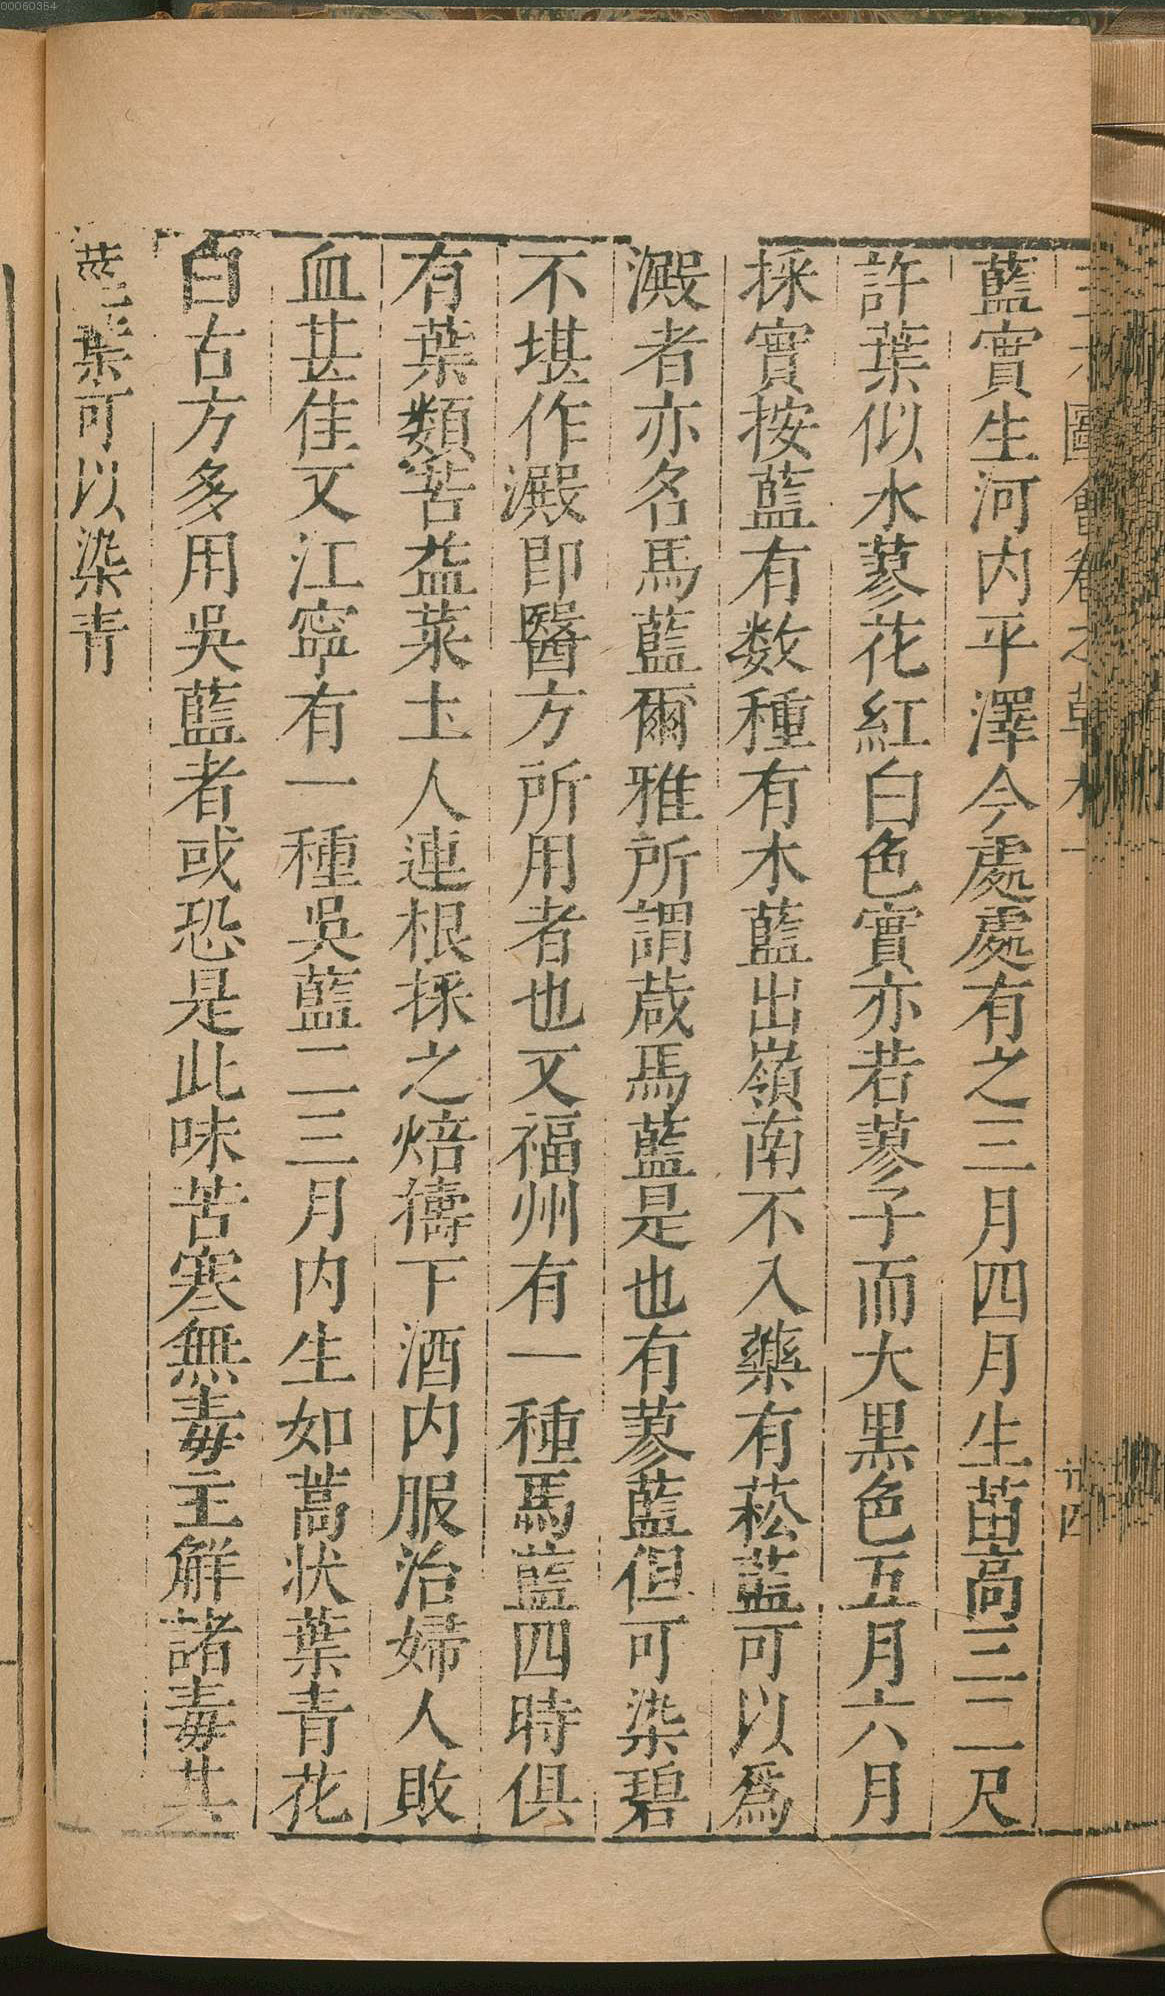 00060354
圖會卷
廿四
藍實生河内平澤今處處有之三月四月生苗高三二尺
許葉似水蓼花紅白色實亦若蓼子而大黒色五月六月
採實按藍有数種有木藍出嶺南不入藥有菘藍可以爲
澱者亦名馬藍爾雅所謂葴馬藍是也有蓼藍但可染碧
不堪作澱即醫方所用者也又福州有一種馬藍四時俱
有葉類苦益菜土人連根採之焙擣下酒内服治婦人敗
血甚佳又江寧有一種吳藍二三月内生如蒿状葉青花
白古方多用吳藍者或恐是此味苦寒無毒主解諸毒其
莖葉可以染青